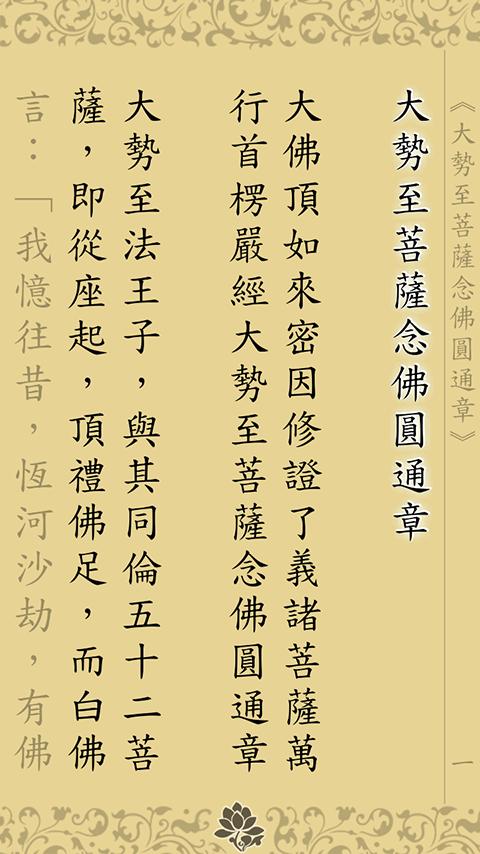 《大勢至菩薩念佛圓通章》
一
大勢至菩薩念佛圓通章
大佛頂如來密因修證了義諸菩薩萬
行首楞嚴經大勢至菩薩念佛圓通章
大勢至法王子，與其同倫五十二菩
薩，即從座起，頂禮佛足，而白佛
言：「我憶往昔，恆河沙劫，有佛